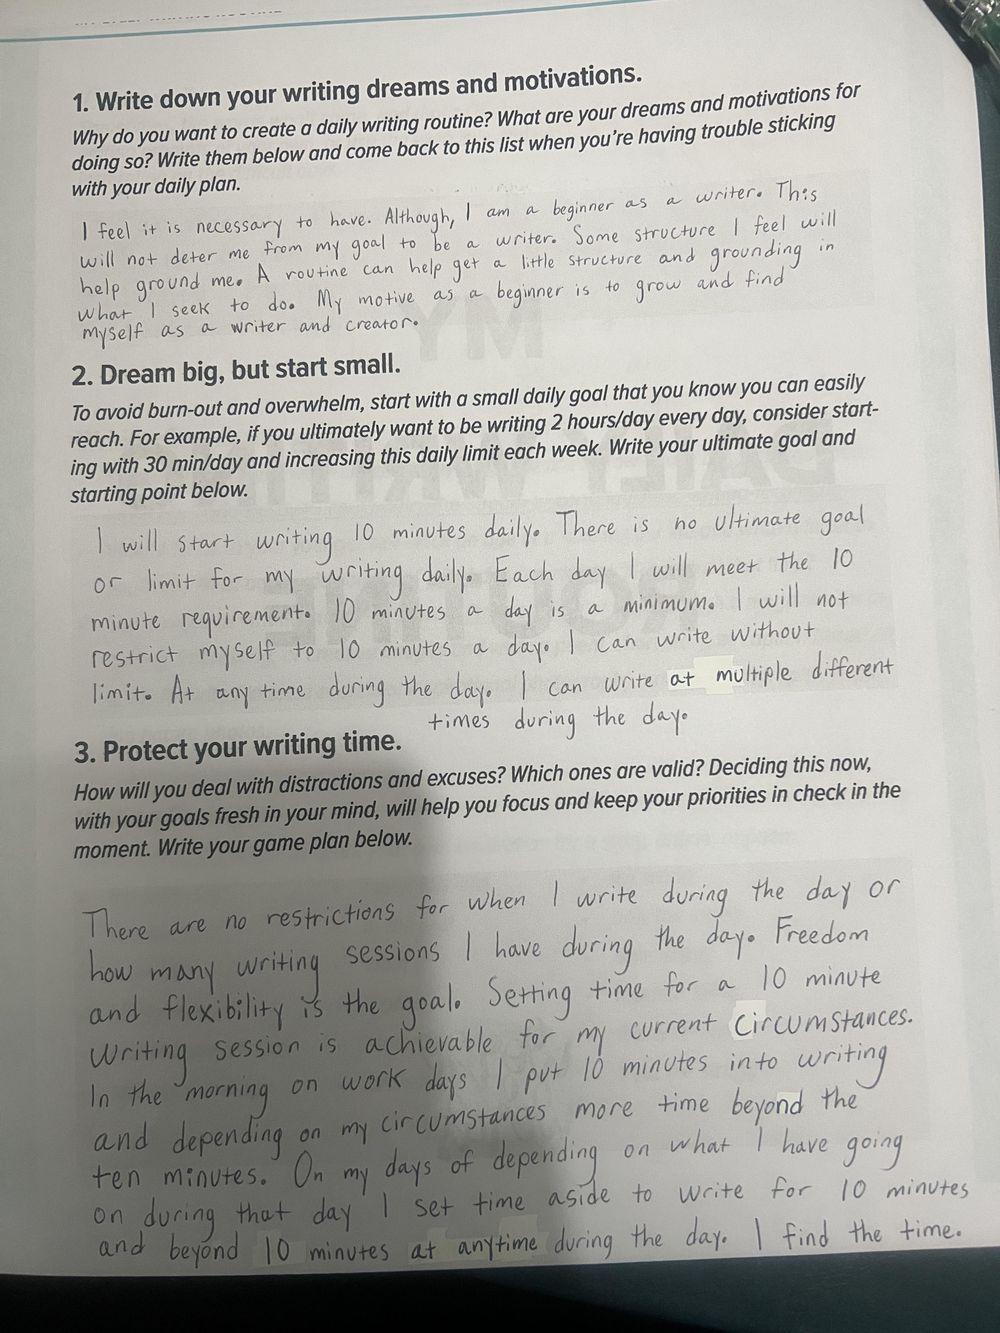 1. Write down your writing dreams and motivations.
Why do you want to create a daily writing routine? What are your dreams and motivations for
doing so? Write them below and come back to this list when you're having trouble sticking
with your daily plan.
I feel it is necessary to have. Although, I am a beginner as a writer. This
will not deter me from my goal to be a writer. Some structure I feel will
help ground me. A routine can help get a little structure and grounding in
what I seek to do. My motive as a beginner is to grow and find
myself as a writer and creator.
2. Dream big, but start small.
To avoid burn-out and overwhelm, start with a small daily goal that you know you can easily
reach. For example, if you ultimately want to be writing 2 hours/day every day, consider start-
ing with 30 min/day and increasing this daily limit each week. Write your ultimate goal and
starting point below.
I will start writing 10 minutes daily. There is no ultimate goal
or limit for my writing daily. Each day I will meet the 10
minute requirement. 10 minutes a day is a minimum. I will not
restrict myself to 10 minutes a day. I can write without
limit. At any time during the day. I can write at multiple different
times during the day.
3. Protect your writing time.
How will you deal with distractions and excuses? Which ones are valid? Deciding this now,
with your goals fresh in your mind, will help you focus and keep your priorities in check in the
moment. Write your game plan below.
There are no restrictions for when I write during the day or
how many writing sessions I have during the day. Freedom
and flexibility is the goal. Setting time for a 10 minute
writing session is achievable for my current circumstances.
In the morning on work days I put 10 minutes into writing
and depending on my circumstances more time beyond the
ten minutes. On my days of depending on what I have going
on during that day I set time aside to write for 10 minutes
and beyond 10 minutes at anytime during the day. I find the time.